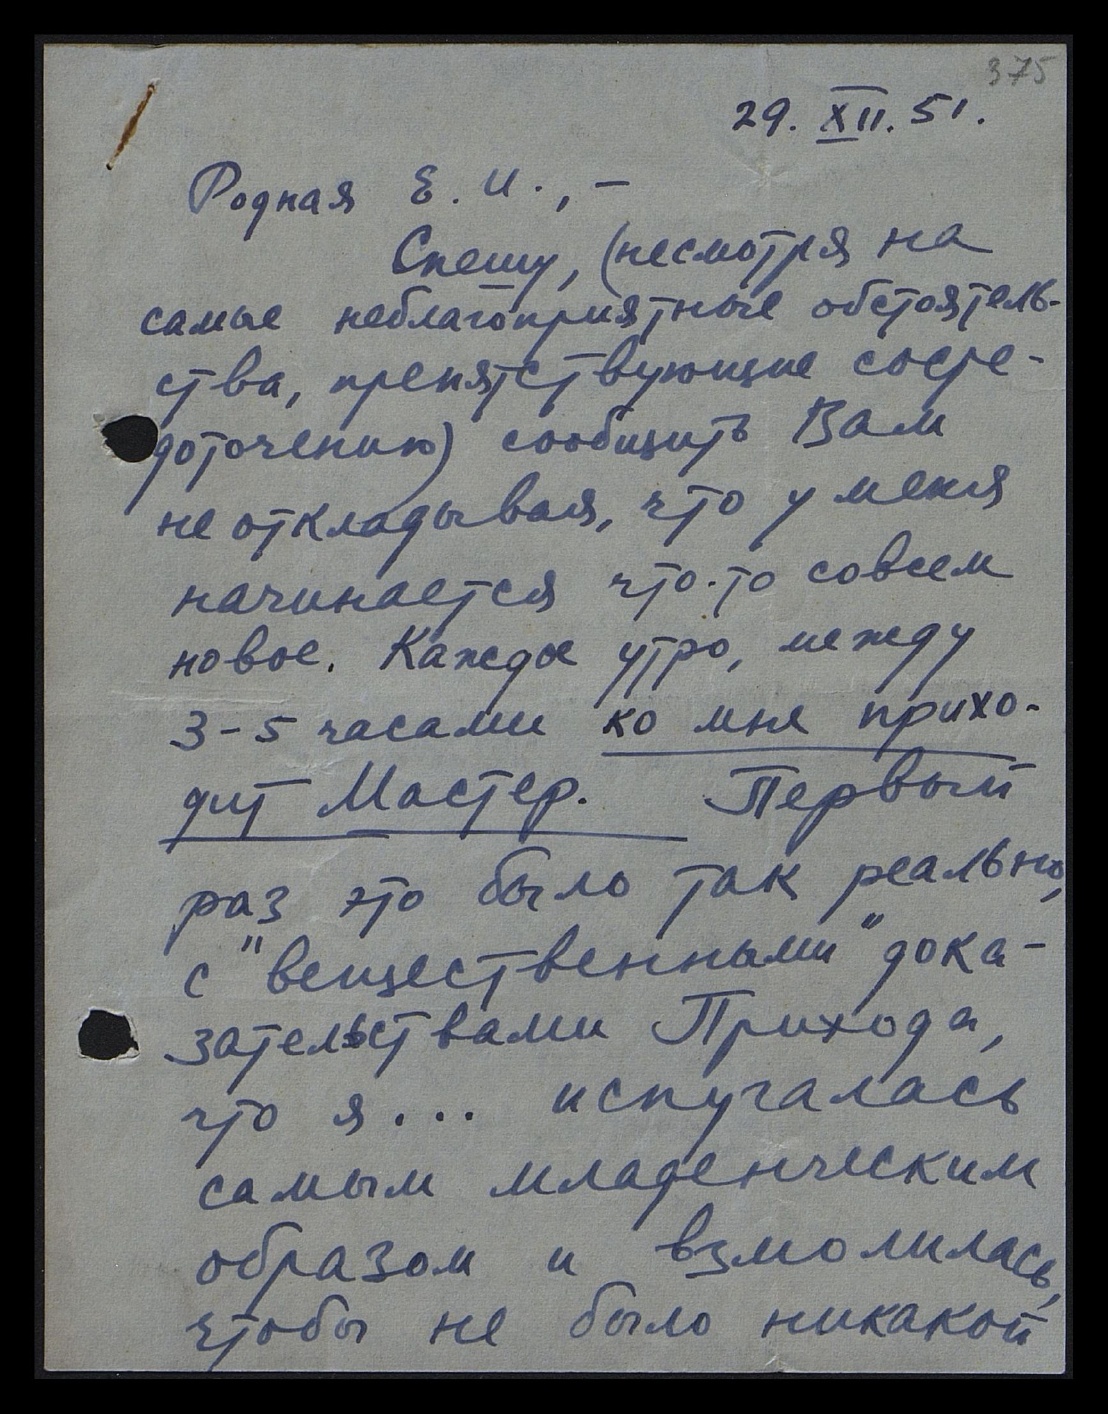 375
29. XII. 51.
Родная Е. И., –
Спешу, (несмотря на
самые неблагоприятные обстоятель-
ства, препятствующие сосре-
доточению) сообщить Вам
не откладывая, что у меня
начинается что-то совсем
новое. Каждое утро, между
3-5 часами ко мне прихо-
дит Мастер. Первый
раз это было так реально,
с "вещественными" дока-
зательствами Прихода,
что я... испугалась
самым младенческим
образом и взмолилась,
чтобы не было никакой